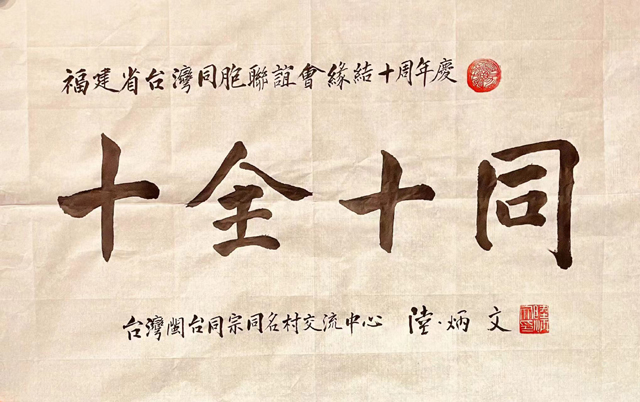 福建省台灣同胞聯誼會緣結十周年慶
十全十同
台灣閩台同宗同名村交流中心 陸·炳文